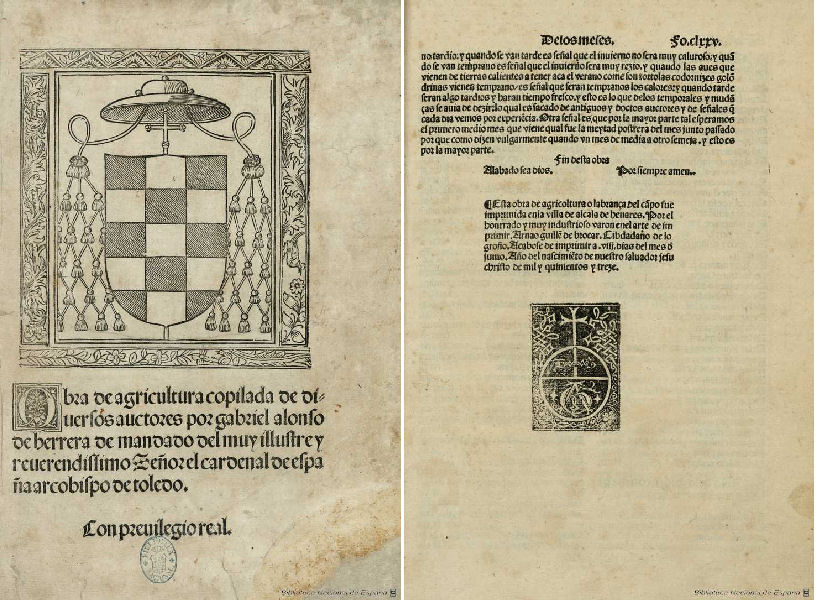 Obra de agricultura copilada de di-
uersos auctores por gabriel alonso
de herrera de mandado del muy illustre y
reuerendissimo Señor el cardenal de espa
ña arcobispo de toledo.
Con preuilegio real.
Biblioteca Nacional de España
De los meses. Fo.clxxv.
no tardio. y quando se van tarde es señal que el inuierno no sera muy caluroso. y quã
do se van temprano es señal que el inuierno sera muy rezio. y quando las aues que
vienen de tierras calientes a tener aca el verano come son tortolas codornizes golõ
drinas vienes temprano/es señal que seran tempranos los calores: y quando tarde
seran algo tardios y haran tiempo fresco. y esto es lo que delos temporales y mudã
ças se auia de dezir lo qual es sacado de antiguos y doctos auctores y de señales q̃
cada dia vemos por experiẽcia. Otra señal es. que por la mayor parte tal esperamos
el primero medio mes que viene qual fue la meytad postrera del mes junto passado
por que como dizen vulgarmente quando vn mes de media a otro semeja. y esto es
por la mayor parte.
Fin desta obra
Alabado sea dios. Por siempre amen.
¶Esta obra de agricoltura o labrança del cãpo fue
imprimida enla villa de alcala de henares. Por el
honrrado y muy industrioso varon enel arte de im
primir. Arnao guillẽ de brocar. Cibdadano de lo
groño. Acabose de imprimir a .viij. dias del mes d̃
junio. Año del nascimiẽto de nuestro saluador jesu
christo de mil y quinientos y treze.
Biblioteca Nacional de España